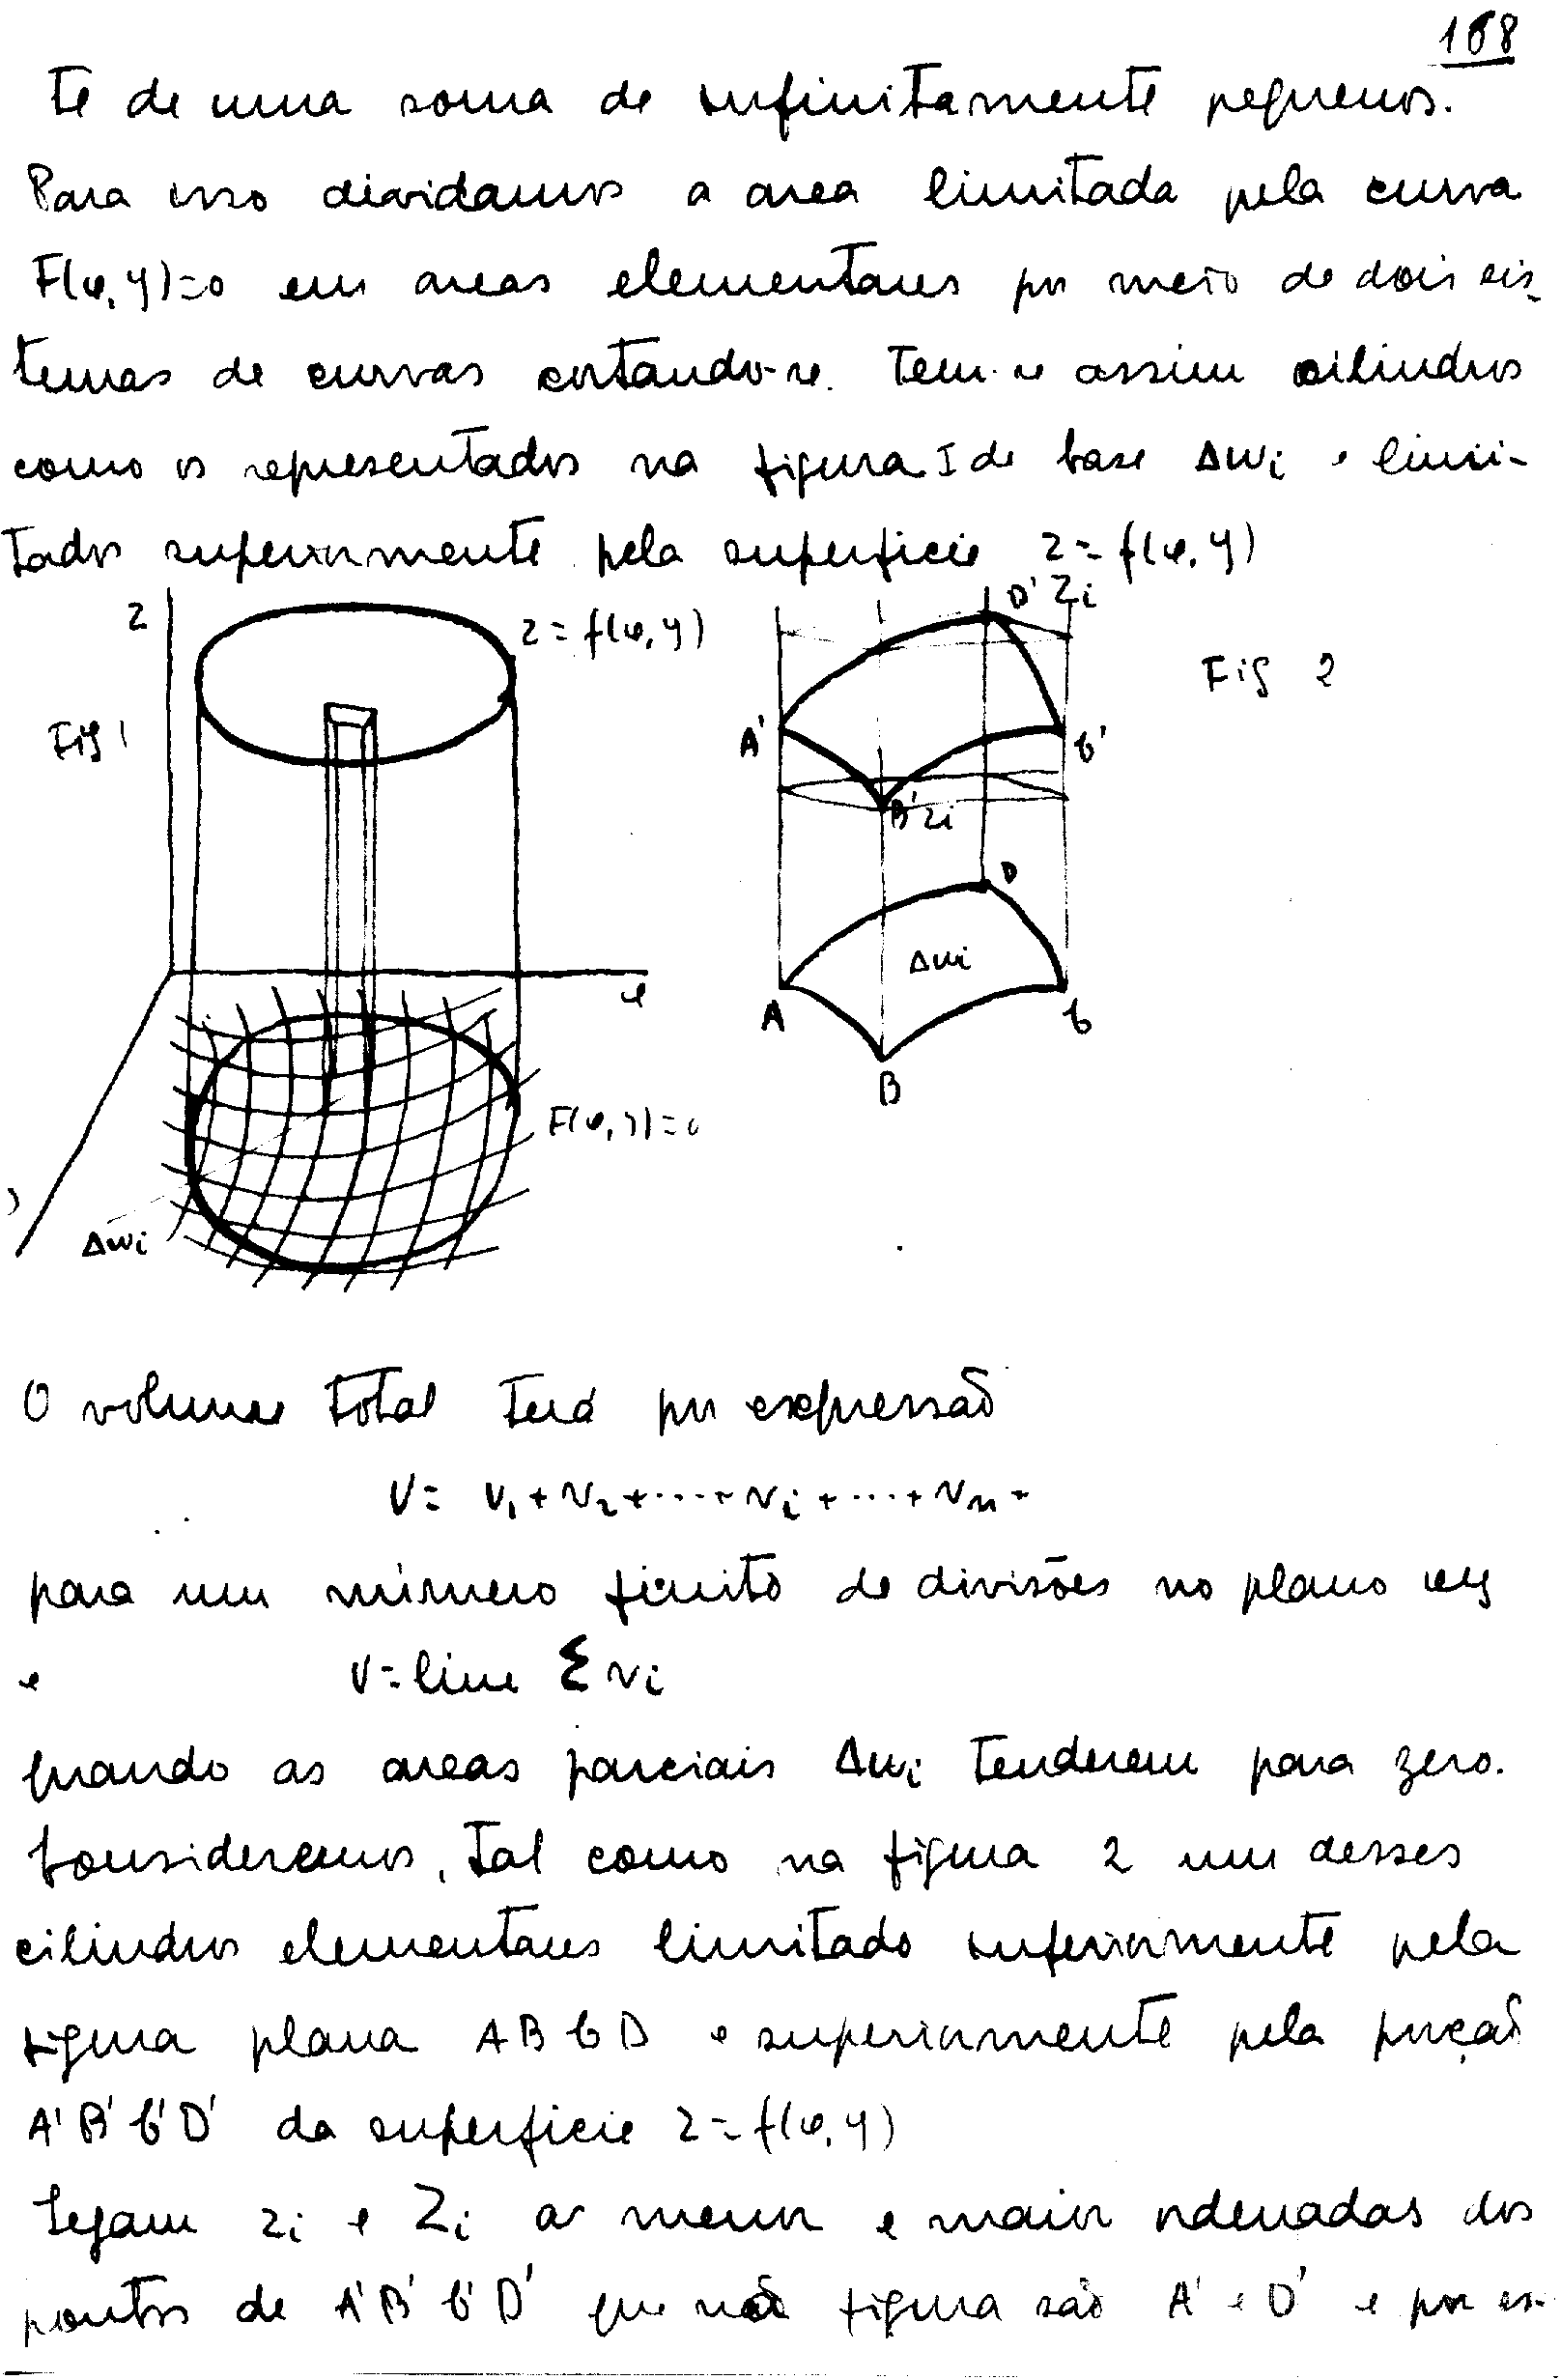 168
te de uma soma de infinitamente pequenos.
Para isso dividamos a area limitada pela curva
F(x, y)=0 em areas elementares por meio de dois sis-
temas de curvas cortando-se. Tem-se assim cilindros
como os representados na figura I de base Δωi e limi-
tados superiormente pela superficie z = f(x, y)
z
z = f(x, y)
D' Zi
Fig 2
Fig 1
A'
C'
B' zi
D
Δωi
x
A
C
B
F(x, y)=0
Δωi
O volume total terá por expressão
V = v1 + v2 + .... + vi + ... + vn
para um número finito de divisões no plano xy
e V = lim Σ vi
quando as areas parciais Δωi tenderem para zero.
Consideremos, tal como na figura 2 um desses
cilindros elementares limitado inferiormente pela
figura plana ABCD e superiormente pela porção
A'B'C'D' da superficie z = f(x, y)
Sejam zi e Zi as menor e maior ordenadas dos
pontos de A'B'C'D' que na figura são A' e D' e por es-